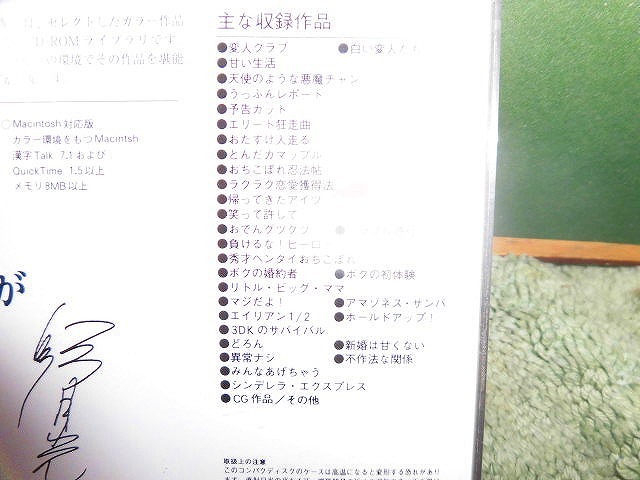 主な収録作品
は、セレクトしたカラー作品
CD-ROMライブラリです
の環境でその作品を堪能
○Macintosh対応版
カラー環境をもつMacintsh
漢字Talk 7.1および
QuickTime 1.5以上
メモリ8MB以上
が
●変人クラブ ●白い変人たち
●甘い生活
●天使のような悪魔チャン
●うっふんレポート
●予告カット
●エリート狂走曲
●おたすけ人走る
●とんだカマップル
●おちこぼれ忍法帖
●ラクラク恋愛獲得法
●帰ってきたアイツ
●笑って許して
●おでんクツクツ
●負けるな!ヒーロー
●秀才ヘンタイおちこぼれ
●ボクの婚約者 ●ボクの初体験
●リトル・ビッグ・ママ
●マジだよ! ●アマゾネス・サンバ
●エイリアン1/2 ●ホールドアップ!
●3DKのサバイバル
●どろん ●新婚は甘くない
●異常ナシ ●不作法な関係
●みんなあげちゃう
●シンデレラ・エクスプレス
●CG作品/その他
取扱上の注意
このコンパクトディスクのケースは高温になると変形する恐れがあり